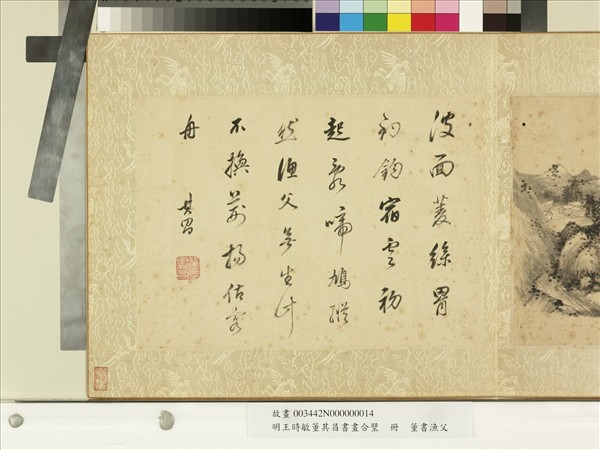 波面菱絲罥
釣鉤宿雲初
起亂啼鳩縱
然漁父無生計
不換荊楊估客
舟
其昌
故畫 003442N000000014
明王時敏董其昌書畫合璧　冊　董書漁父